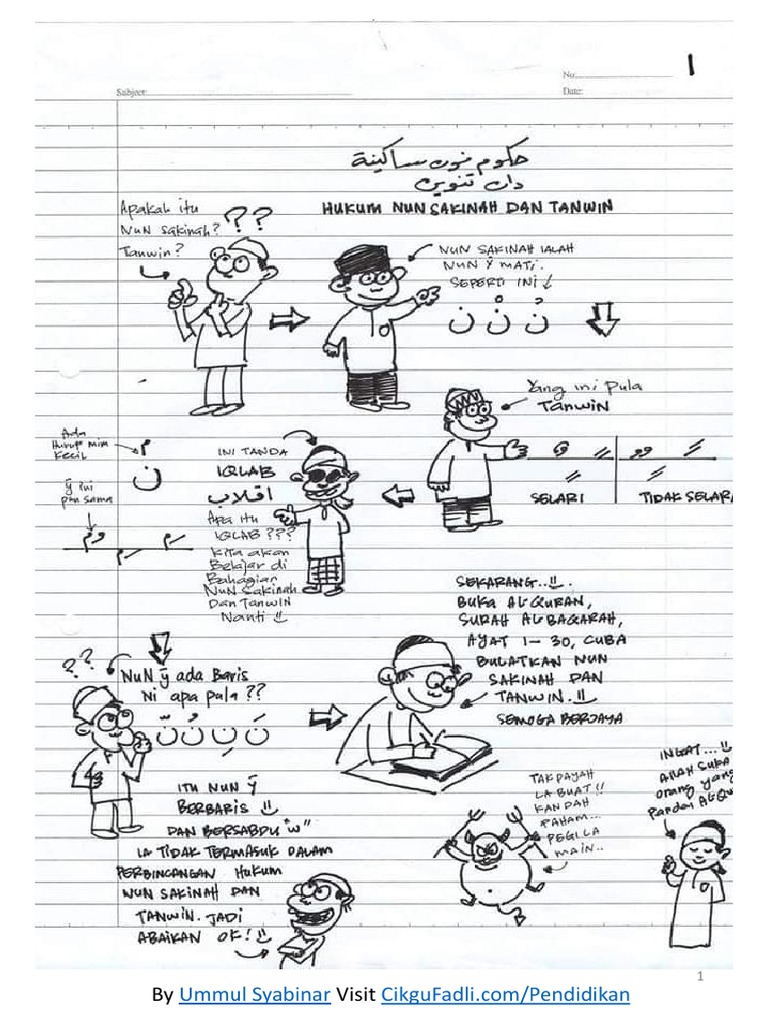 No.
1
Subject:
Date:
حكوم نون ساكينة
دان تنوين
HUKUM NUN SAKINAH DAN TANWIN
Apakah itu
Nun Sakinah?
Tanwin?
??
NUN SAKINAH IALAH
NUN Ÿ MATI.
SEPERTI INI
ن نْ نُ
Yang ini pula
TANWIN
SELARI
TIDAK SELAR
INI TANDA
IQLAB
اقلاب
Apa itu
IQLAB ???
Kita akan
Belajar di
Bahagian
Nun Sakinah
Dan Tanwin
Nanti
Ada
Huruf mim
Kecil
م
ن
ÿ ini
pun sama
??
NUN ÿ ada Baris
Ni apa pula ??
ITU NUN Ÿ
BERBARIS
DAN BERSABDU "w"
IA TIDAK TERMASUK DALAM
PERBINCANGAN HUKUM
NUN SAKINAH DAN
TANWIN. JADI
ABAIKAN OK!
SEKARANG..!!
BUKA AL-QURAN,
SURAH AL-BAQARAH,
AYAT 1-30, CUBA
BULATKAN NUN
SAKINAH DAN
TANWIN.
SEMOGA BERJAYA
TAK PAYAH
LA BUAT !!
KAN DAH
PAHAM...
PEGI LA
MAIN..
INGAT...
Allah suka
orang yang
Pandai Al-Qu
1
By Ummul Syabinar Visit CikguFadli.com/Pendidikan